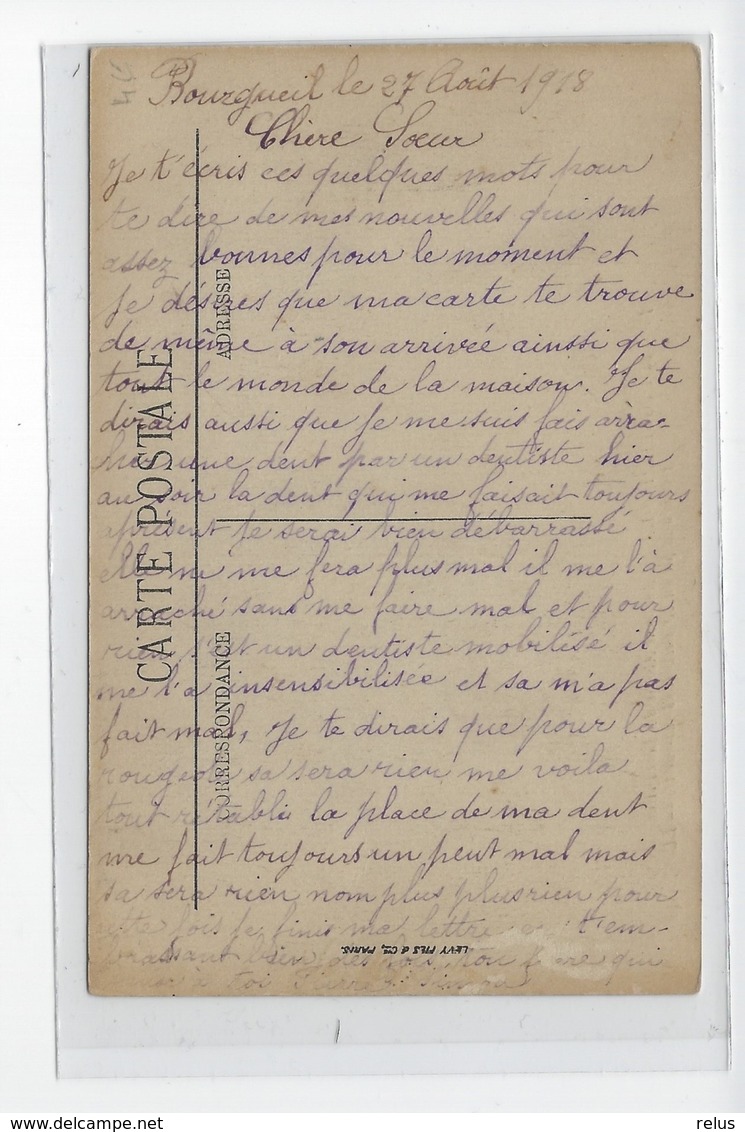 Bourgueil le 27 Août 1918
Chère Soeur
Je t'écris ces quelques mots pour
te dire de mes nouvelles qui sont
assez bonnes pour le moment et
Je désires que ma carte te trouve
de même à son arrivée ainssi que
tout le monde de la maison. Je te
dirais aussi que Je me suis fais arra-
her une dent par un dentiste hier
au soir la dent qui me faisait toujours
présent Je serai bien débarrassé
elle ne me fera plus mal il me l'à
arraché sans me faire mal et pour
rien s'est un dentiste mobilisé il
me l'a insensibilisée et sa m'a pas
fait mal, Je te dirais que pour la
rougeole sa sera rien me voila
tout rétabli la place de ma dent
me fait toujours un peut mal mais
sa sera rien nom plus plus rien pour
cette fois Je finis ma lettre en t'em-
brassant bien des ton frère qui
à toi Pierre
CARTE POSTALE
CORRESPONDANCE
ADRESSE
LEVY FILS & Cie, PARIS.
relus